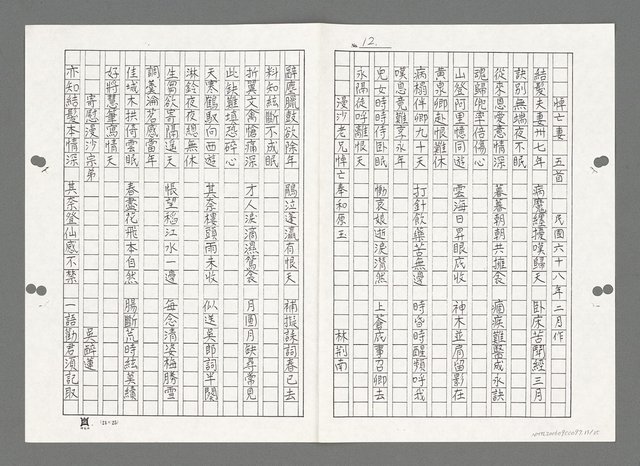 12.
悼亡妻 五首 民國六十八年二月作
結髮夫妻卅七年 病魔纏擾嘆歸天 臥床苦聞經三月
訣別無端夜不眠
從來恩愛意情深 暮暮朝朝共擁衾 痼疾難醫成永訣
魂歸兜率倍傷心
山登阿里憶同遊 雲海日昇眼底收 神木並肩留影在
黃泉卿赴恨難休
病榻伴卿九十天 打針飲藥苦無邊 時昏時醒頻呼我
嘆息竟難享永年
兒女時時侍臥眠 慟哀娘逝淚潸然 上蒼底事召卿去
永隔徒呼離恨天
漫沙老兄悼亡奉和原玉 林荊南
辭塵臘鼓欲除年 鵑泣蓬瀛有恨天 補撥謀詞春已去
料知絃斷不成眠
折翼文禽愴痛深 才人淚滴濕鴛衾 月圓月缺尋常見
此缺難填恐碎心
天寒鶴馭向西遊 其奈樓頭雨未收 似送吳郎詞半闋
淋鈴夜夜恐無休
生芻欲奠隔遙天 悵望稻江水一邊 每念清姿梅勝雪
調羹淪茗感當年
佳城木拱倚雲眠 春盡花飛本自然 腸斷荒時絃莫續
好將慧筆寫情天
寄慰漫沙宗弟 吳醉蓮
亦知結髮本情深 其奈登仙感不禁 一語勸君須記取
(25×22)